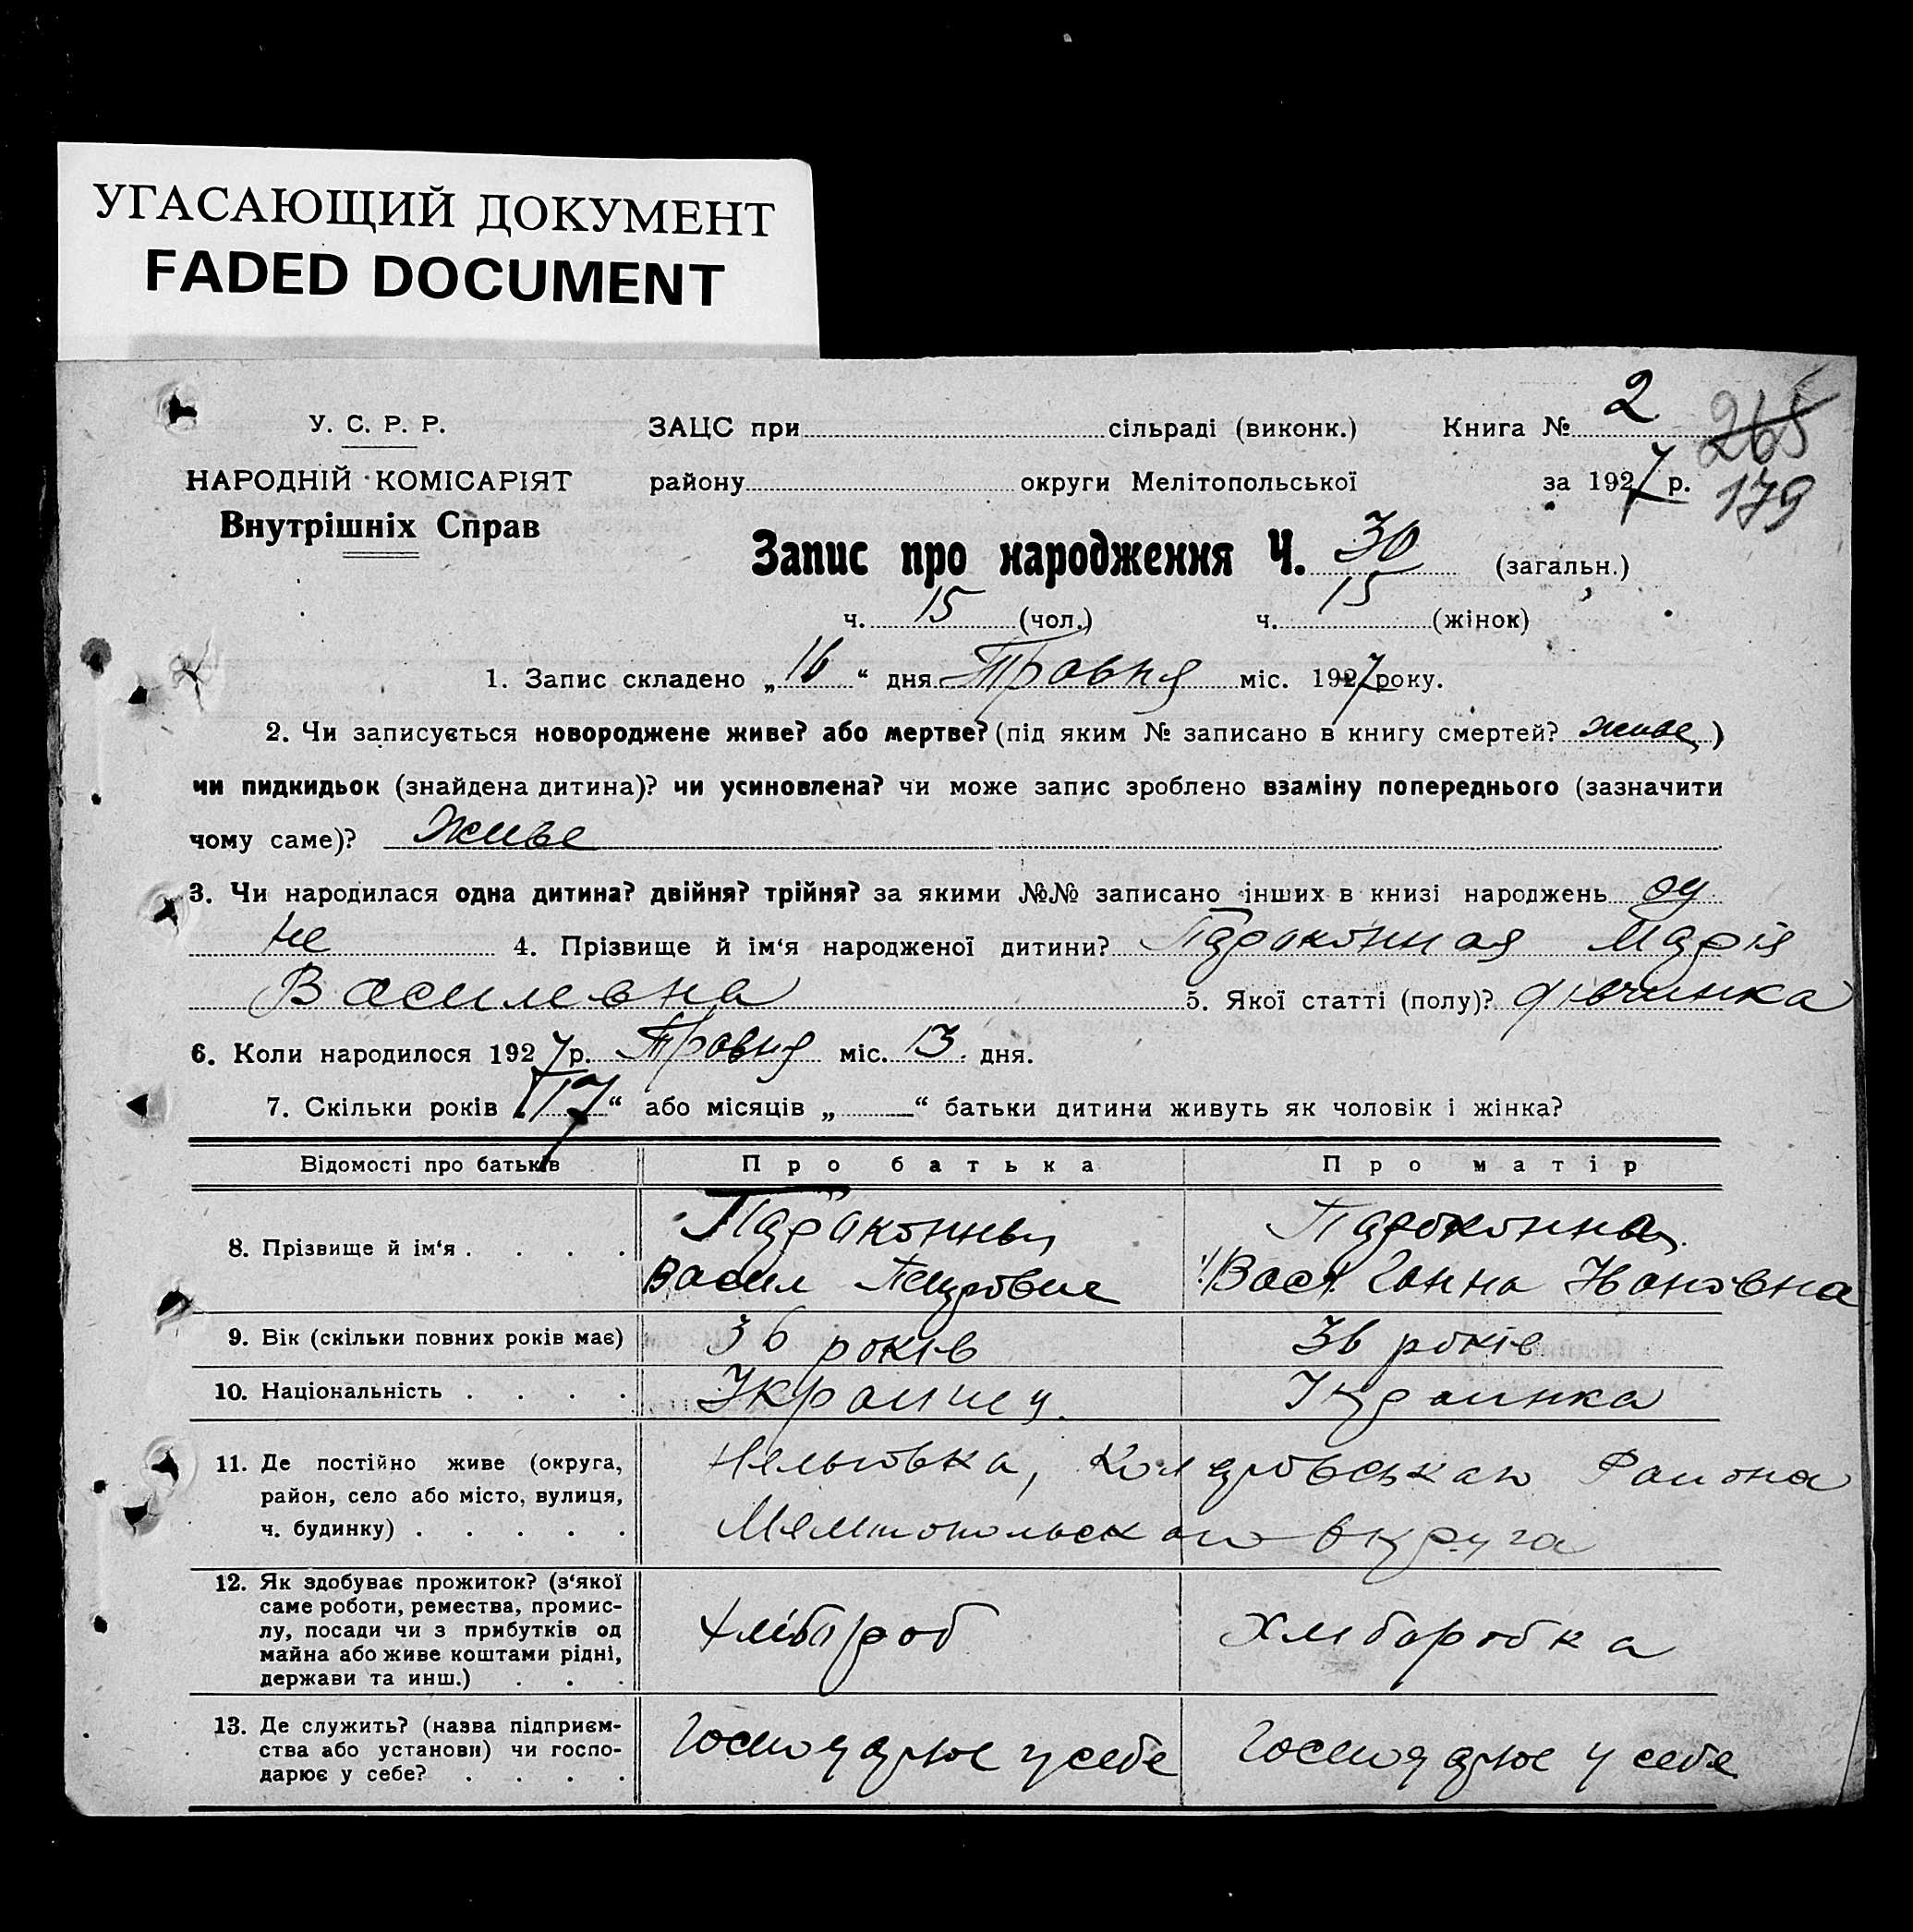 УГАСАЮЩИЙ ДОКУМЕНТ
FADED DOCUMENT
У. С. Р. Р.
НАРОДНІЙ КОМІСАРІЯТ
Внутрішніх Справ
ЗАЦС при сільраді (виконк.) Книга № 2
265
району округи Мелітопольської за 1927 р.
179
Запис про народження Ч. 30 (загальн.)
ч. 15 (чол.) ч. 15 (жінок)
1. Запис складено „16“ дня Травня міс. 1927 року.
2. Чи записується новороджене живе? або мертве? (під яким № записано в книгу смертей? живе)
чи пидкидьок (знайдена дитина)? чи усиновлена? чи може запис зроблено взаміну попереднього (зазначити
чому саме)? живе
3. Чи народилася одна дитина? двійня? трійня? за якими №№ записано інших в книзі народжень од
не 4. Прізвище й ім‘я народженої дитини? Марія
Василевна 5. Якої статті (полу)? дівчинка
6. Коли народилося 1927 р. Травня міс. 13 дня.
7. Скільки років „17“ або місяців „ “ батьки дитини живуть як чоловік і жінка?
Відомості про батьків Про батька Про матір
8. Прізвище й ім‘я
Васил Петрович Ганна Ивановна
9. Вік (скільки повних років має) 36 років 36 років
10. Національність Украинец Украинка
11. Де постійно живе (округа,
район, село або місто, вулиця,
ч. будинку)
Района
Мелитопольского округа
12. Як здобуває прожиток? (з‘якої
саме роботи, ремества, промис-
лу, посади чи з прибутків од
майна або живе коштами рідні,
держави та инш.)
хлібороб Хлиборобка
13. Де служить? (назва підприєм-
ства або установи) чи госпо-
дарює у себе?
Господарює у себе Господарює у себе